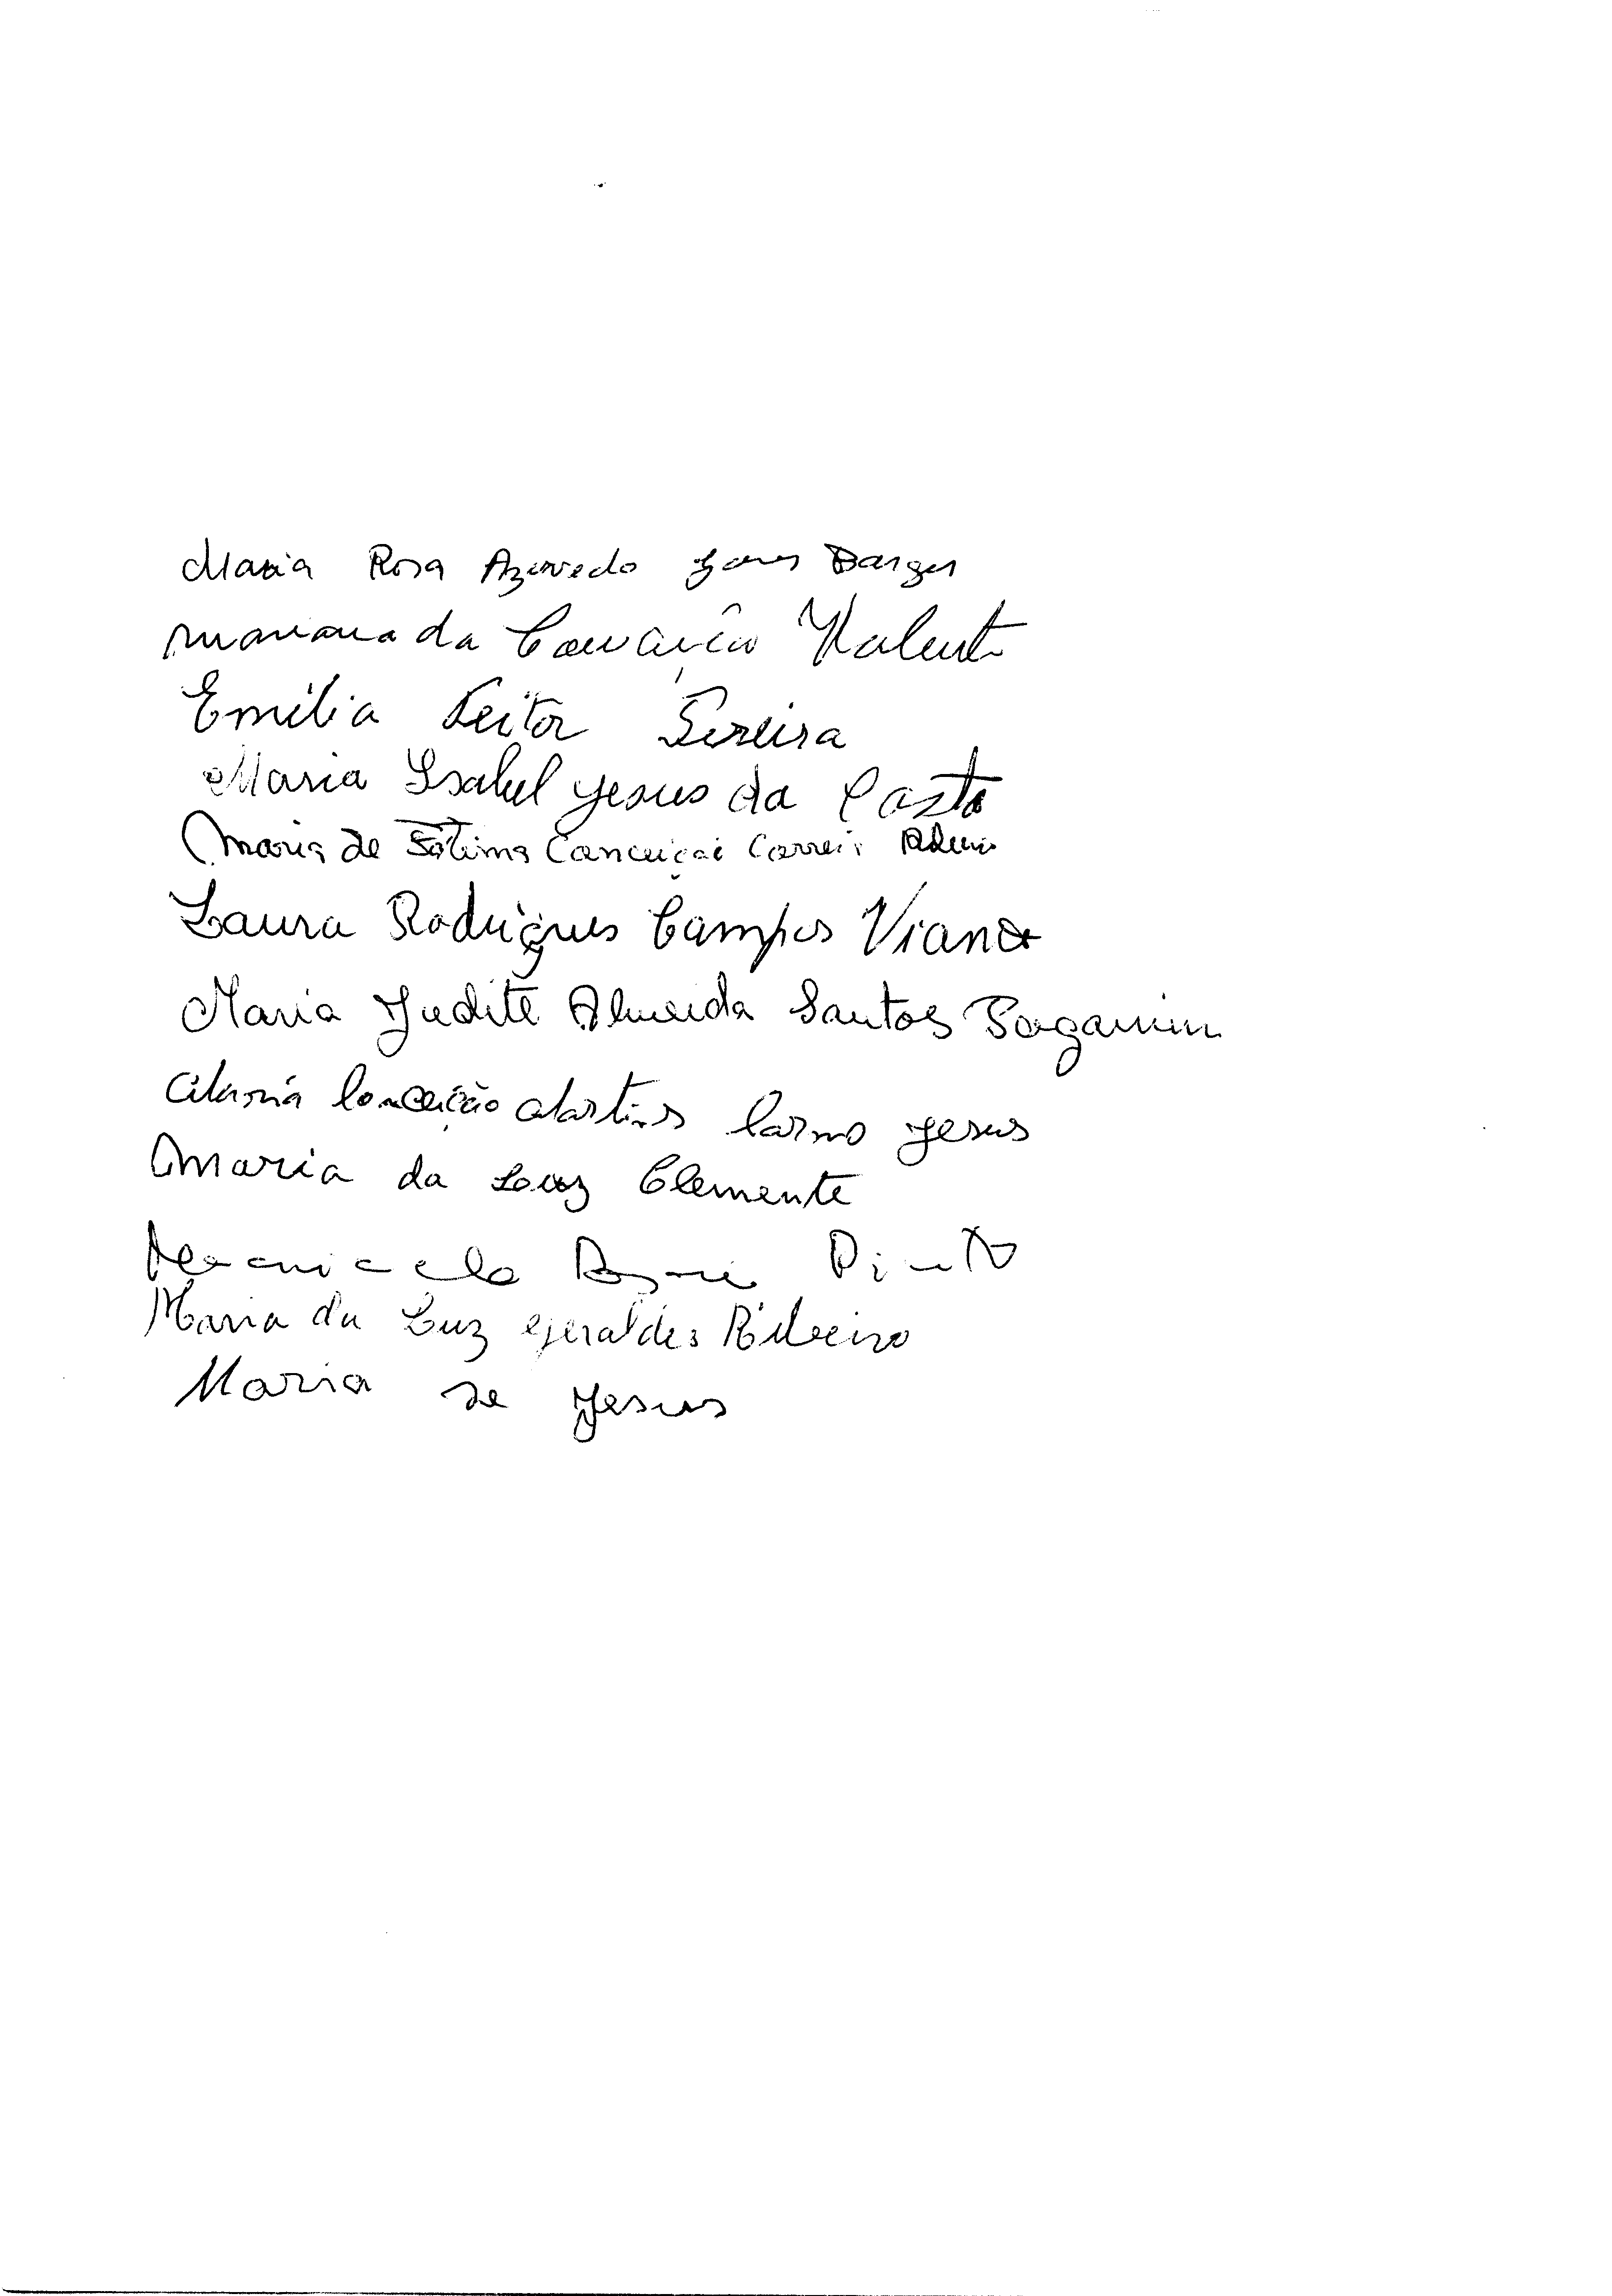 Maria Rosa Azevedo Gomes Borges
Mariana da Conceição Valente
Emília Leitor Pereira
Maria Isabel Jesus da Costa
Maria de Fátima Conceição Correia Ribeiro
Laura Rodrigues Campos Viana
Maria Judite Almeida Santos
Maria Conceição Martins Carmo Jesus
Maria da Luz Clemente
Pinto
Maria da Luz Geraldes Ribeiro
Maria de Jesus